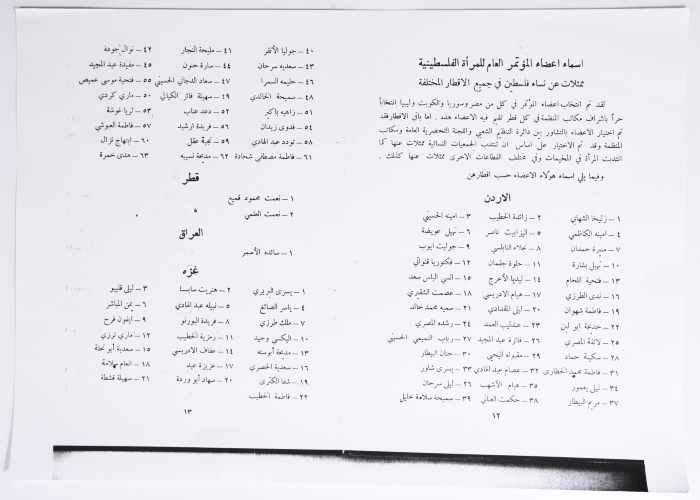 اسماء اعضاء المؤتمر العام للمرأة الفلسطينية
ممثلات عن نساء فلسطين في جميع الاقطار المختلفة
لقد تم انتخاب اعضاء المؤتمر في كل من مصر وسوريا والكويت وليبيا انتخابا
حرا باشراف مكاتب المنظمة في كل قطر تقيم فيه الاعضاء هذه . اما باقي الاقطار فقد
تم اختيار الاعضاء بالتشاور بين دائرة التنظيم الشعبي واللجنة التحضيرية العامة ومكاتب
المنظمة وقد تم الاختيار على اساس ان تنتدب الجمعيات النسائية ممثلات عنها كما
انتدبت المرأة في المخيمات وفي مختلف القطاعات الاخرى ممثلات عنها كذلك .
وفيما يلي اسماء هؤلاء الاعضاء حسب اقطارهن
الاردن
١ – زليخا الشهابي ٢ – زائدة الخطيب ٣ – امينه الحسيني
٤ – امينه الكاظمي ٥ – اليزابيت ناصر ٦ – نهيل عويضة
٧ – منيرة حمدان ٨ – نجلاء النابلسي ٩ – جوليت ايوب
١٠ – نهيل بشارة ١١ – حلوة جقمان ١٢ – فكتوريا قنواتي
١٣ – فتحية اللحام ١٤ – ليديا الأعرج ١٥ – السي الياس سعد
١٦ – ندى الطرزي ١٧ – هيام الادريسي ١٨ – عصمت الشقيري
١٩ – فاطمة شهوان ٢٠ – ليلى المقدادي ٢١ – سميه محمد خالد
٢٢ – خديجة ابو لبن ٢٣ – عندليب العمد ٢٤ – رشده المصري
٢٥ – لائقة المصري ٢٦ – فائزة عبد المجيد ٢٧ – رباب النميعي الحسيني
٢٨ – سكينة حماد ٢٩ – مقبوله اليحيى ٣٠ – حنان البيطار
٣١ – فاطمة محمد الخطاري ٣٢ – عصام عبد الهادي ٣٣ – يسرى شاور
٣٤ – ليلى يغمور ٣٥ – هيام الأشهب ٣٦ – ليلى سرحان
٣٧ – مريم البيطار ٣٨ – حكمت العناني ٣٩ – سميحة سلامة خليل
١٢
٤٠ – جوليا الأنقر ٤١ – مليحة النجار ٤٢ – نوال جودة
٤٣ – سعديه سرحان ٤٤ – سارة حنون ٤٥ – مفيدة عبد المجيد
٤٦ – حليمه السمرا ٤٧ – سعاد الدجاني الحسيني ٥٥ – فتحية موسى عميص
٤٨ – سميحة الخالدي ٤٩ – سهيلة فائز الكيالي ٥٠ – ماري كردي
٥١ – زاهيه باكير ٥٢ – دعد عناب ٥٣ – ثريا خوشة
٥٤ – فدوى زيدان ٥٦ – فريدة ارشيد ٥٧ – فاطمة العبوشي
٥٨ – تودد عبد الهادي ٥٩ – نجية عقل ٦٠ – ابتهاج نزال
٦١ – فاطمة مصطفى شحادة ٦٢ – مديحة نسيبه ٦٣ – هدى خمرة
قطر
١ – نعمت محمود قميع
٢ – نعمت العلمي
العراق
١ – سائده الأسمر
غزه
١ – يسرى البربري ٢ – هنريت سابا ٣ – ليلى قليبو
٤ – يسر الصائغ ٥ – نبيله عبد الهادي ٦ – يمن المباشر
٧ – ملك طرزي ٨ – فريدة البورنو ٩ – ايفون فرح
١٠ – اليكسي وحيد ١١ – رمزية الخطيب ١٢ – ماري ترزي
١٣ – مديحة ابوسته ١٤ – عفاف الادريسي ١٥ – سعدية ابو نحلة
١٦ – سعدية الخضري ١٧ – عزيزة عيد ١٨ – انعام مهلامة
١٩ – شفا الكترى ٢٠ – سهاد أبو وردة ٢١ – سهيلة قشطة
٢٢ – فاطمة الخطيب
١٣